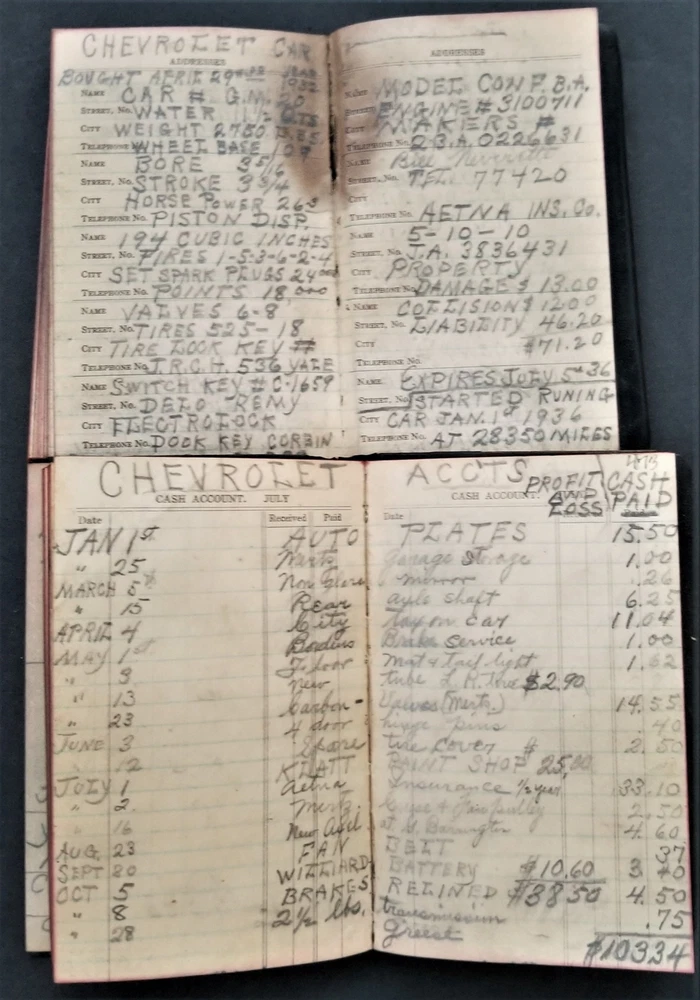 CHEVROLET CAR
ADDRESSES
BOUGHT APRIL 29
NAME CAR # G.M.
STREET, No. WATER 11½ QTS
CITY WEIGHT 2750
TELEPHONE WHEEL BASE 109
NAME BORE 3 5/16
STREET, No. STROKE 3 3/4
CITY HORSE POWER 26 3
TELEPHONE No. PISTON DISP.
NAME 194 CUBIC INCHES
STREET, No. FIRES 1-5-3-6-2-4
CITY SET SPARK PLUGS 24 000
TELEPHONE No. POINTS 18,000
NAME VALVES 6-8
STREET, No. TIRES 525-18
CITY TIRE LOCK KEY #
TELEPHONE No. J.R.C.H. 536 YALE
NAME SWITCH KEY # C-1659
STREET, No. DELO REMY
CITY ELECTROLOCK
TELEPHONE No. DOOK KEY CORBIN
ADDRESSES
NAME MODEL CONF. B.A.
ENGINE # 3100711
CITY MAKERS #
TELEPHONE No. 2 B.A. 0226631
NAME Bill
STREET, No. TEL. 77420
CITY
TELEPHONE No. AETNA INS. Co.
NAME 5-10-10
STREET, No. J.A. 3836431
CITY PROPERTY
TELEPHONE No. DAMAGE $ 13.00
NAME COLLISION $ 12.00
STREET, No. LIABILITY 46.20
CITY $71.20
TELEPHONE No.
NAME EXPIRES JULY 5th 36
STREET, No. STARTED RUNING
CITY CAR JAN. 1st 1936
TELEPHONE No. AT 28350 MILES
CHEVROLET ACCTS PROFIT AND LOSS CASH PAID
CASH ACCOUNT. JULY CASH ACCOUNT.
Date Received Paid Date
JAN 1st AUTO PLATES 15.50
" 25 Mertz Garage Storage 1.00
MARCH 5 Non Glare mirror .26
" 15 Rear axle shaft 6.25
APRIL 4 City Tax on car 11.04
MAY 1st Borders Brake Service 1.00
" 3 Floor mat & tail light 1.62
" new tube L. R. tire $2.90
" 13 Carbon - Valves (Mertz.) 14.55
" 23 4 door hinge pins .40
JUNE 3 Spare tire cover $ 2.50
" 12 KLATT PAINT SHOP 25.00
JULY 1 Aetna Insurance ½ year 33.10
" 2 Mertz 2.50
" 16 New at G. Barrington 4.60
AUG. 23 FAN BELT 37
SEPT 20 WILLIARD BATTERY $10.60 3 40
OCT 5 BRAKES RELINED $38 50 4.50
" 8 2½ lbs. transmission .75
" 28 Greese
$10334